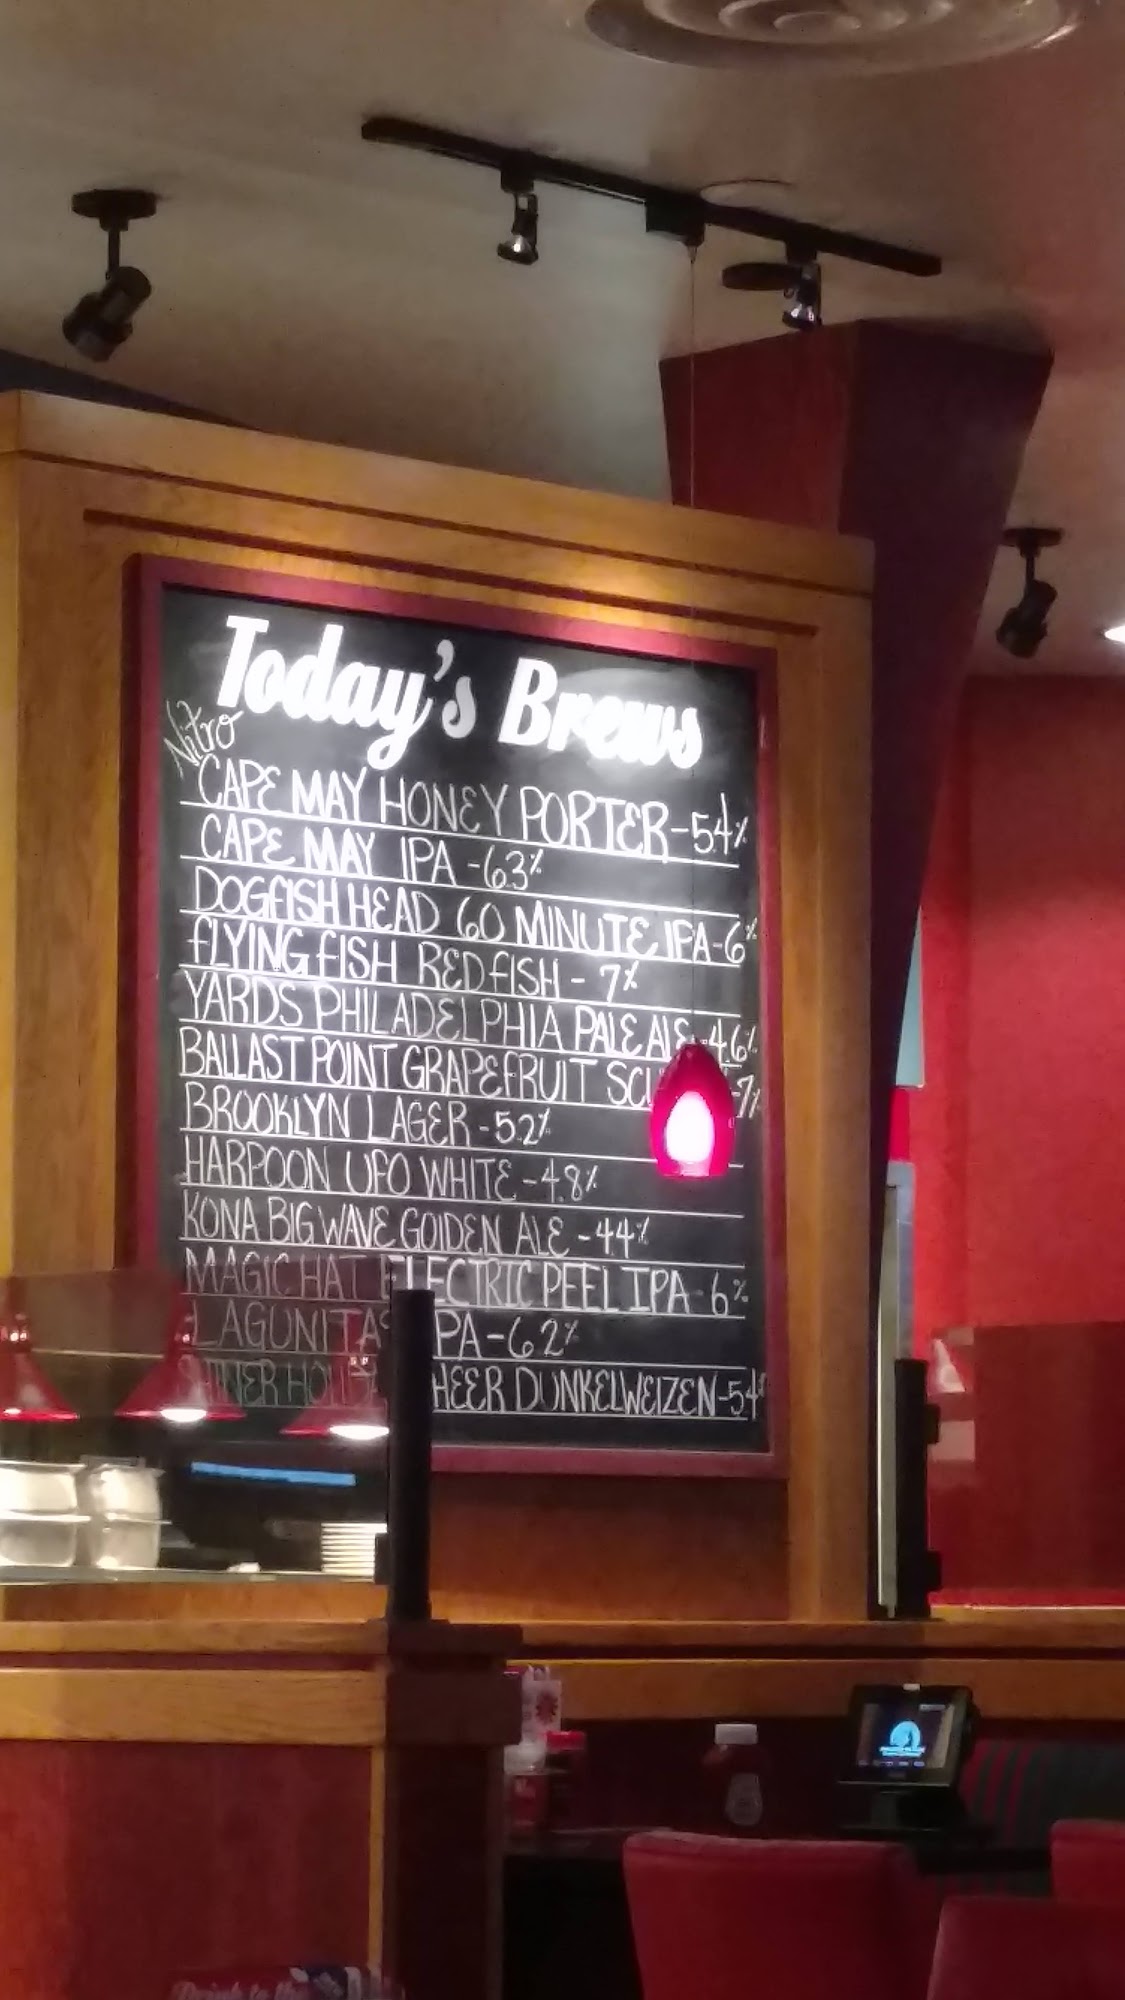 Today's Brews
Nitro
CAPE MAY HONEY PORTER-5.4%
CAPE MAY IPA -6.3%
DOGFISH HEAD 60 MINUTE IPA-6%
FLYING FISH REDFISH - 7%
YARDS PHILADELPHIA PALE ALE-4.6%
BALLAST POINT GRAPEFRUIT -7%
BROOKLYN LAGER -5.2%
HARPOON UFO WHITE -4.8%
KONA BIG WAVE GOLDEN ALE -4.4%
MAGIC HAT ELECTRIC PEEL IPA-6%
LAGUNITAS IPA-6.2%
SHINER HOLIDAY CHEER DUNKELWEIZEN-5.4%